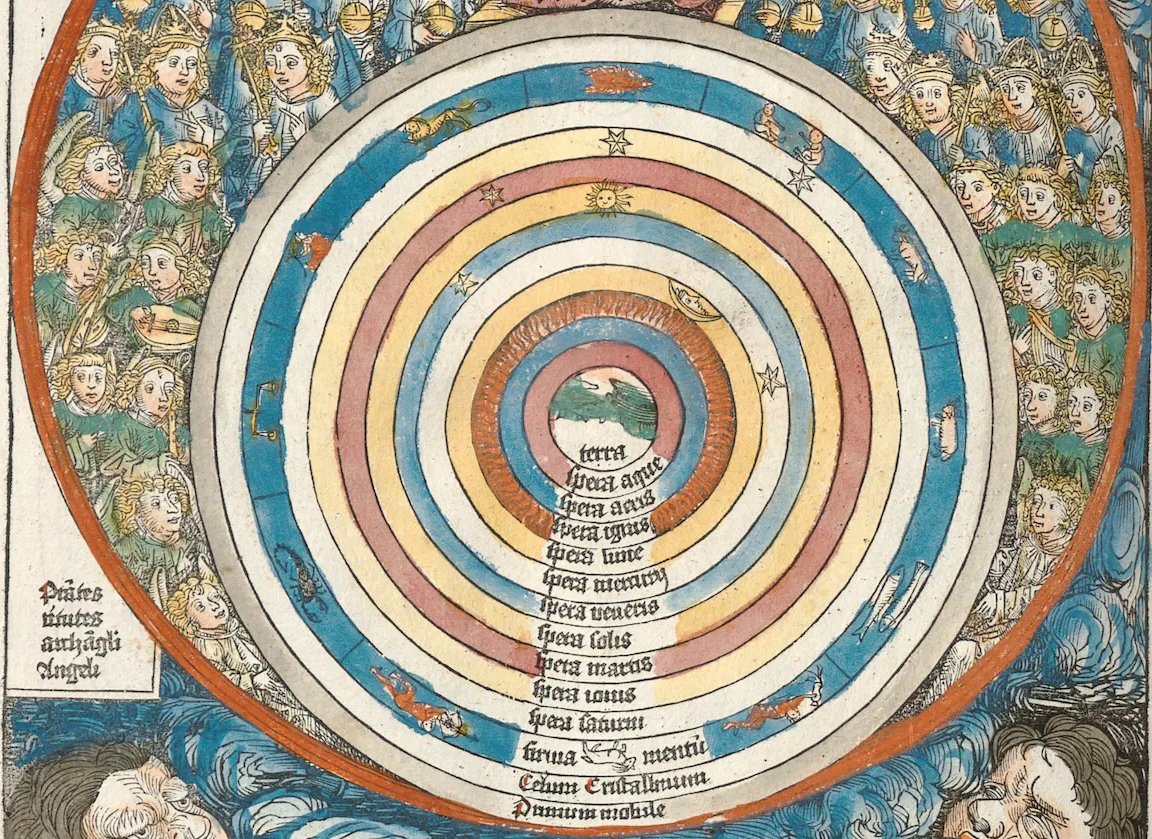 terra
spera aque
spera aeris
spera ignis
spera lune
spera mercurij
spera veneris
spera solis
spera martis
spera iouis
spera saturni
firma mentũ
Celum Cristallinum
Primum mobile
Ptãtes
v̇tutes
archãgli
Angeli